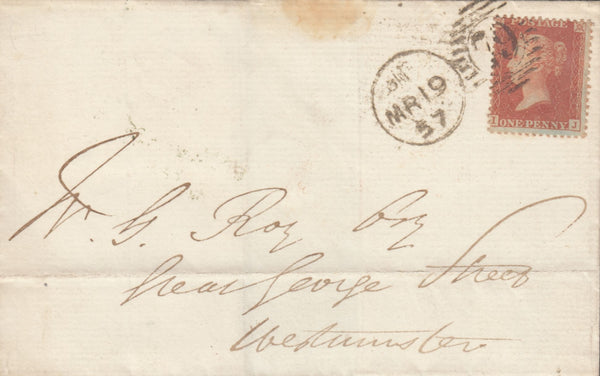 POSTAGE
ONE PENNY
I J
MR 19
57
W. G. Roy Esq
Great George Street
Westminster